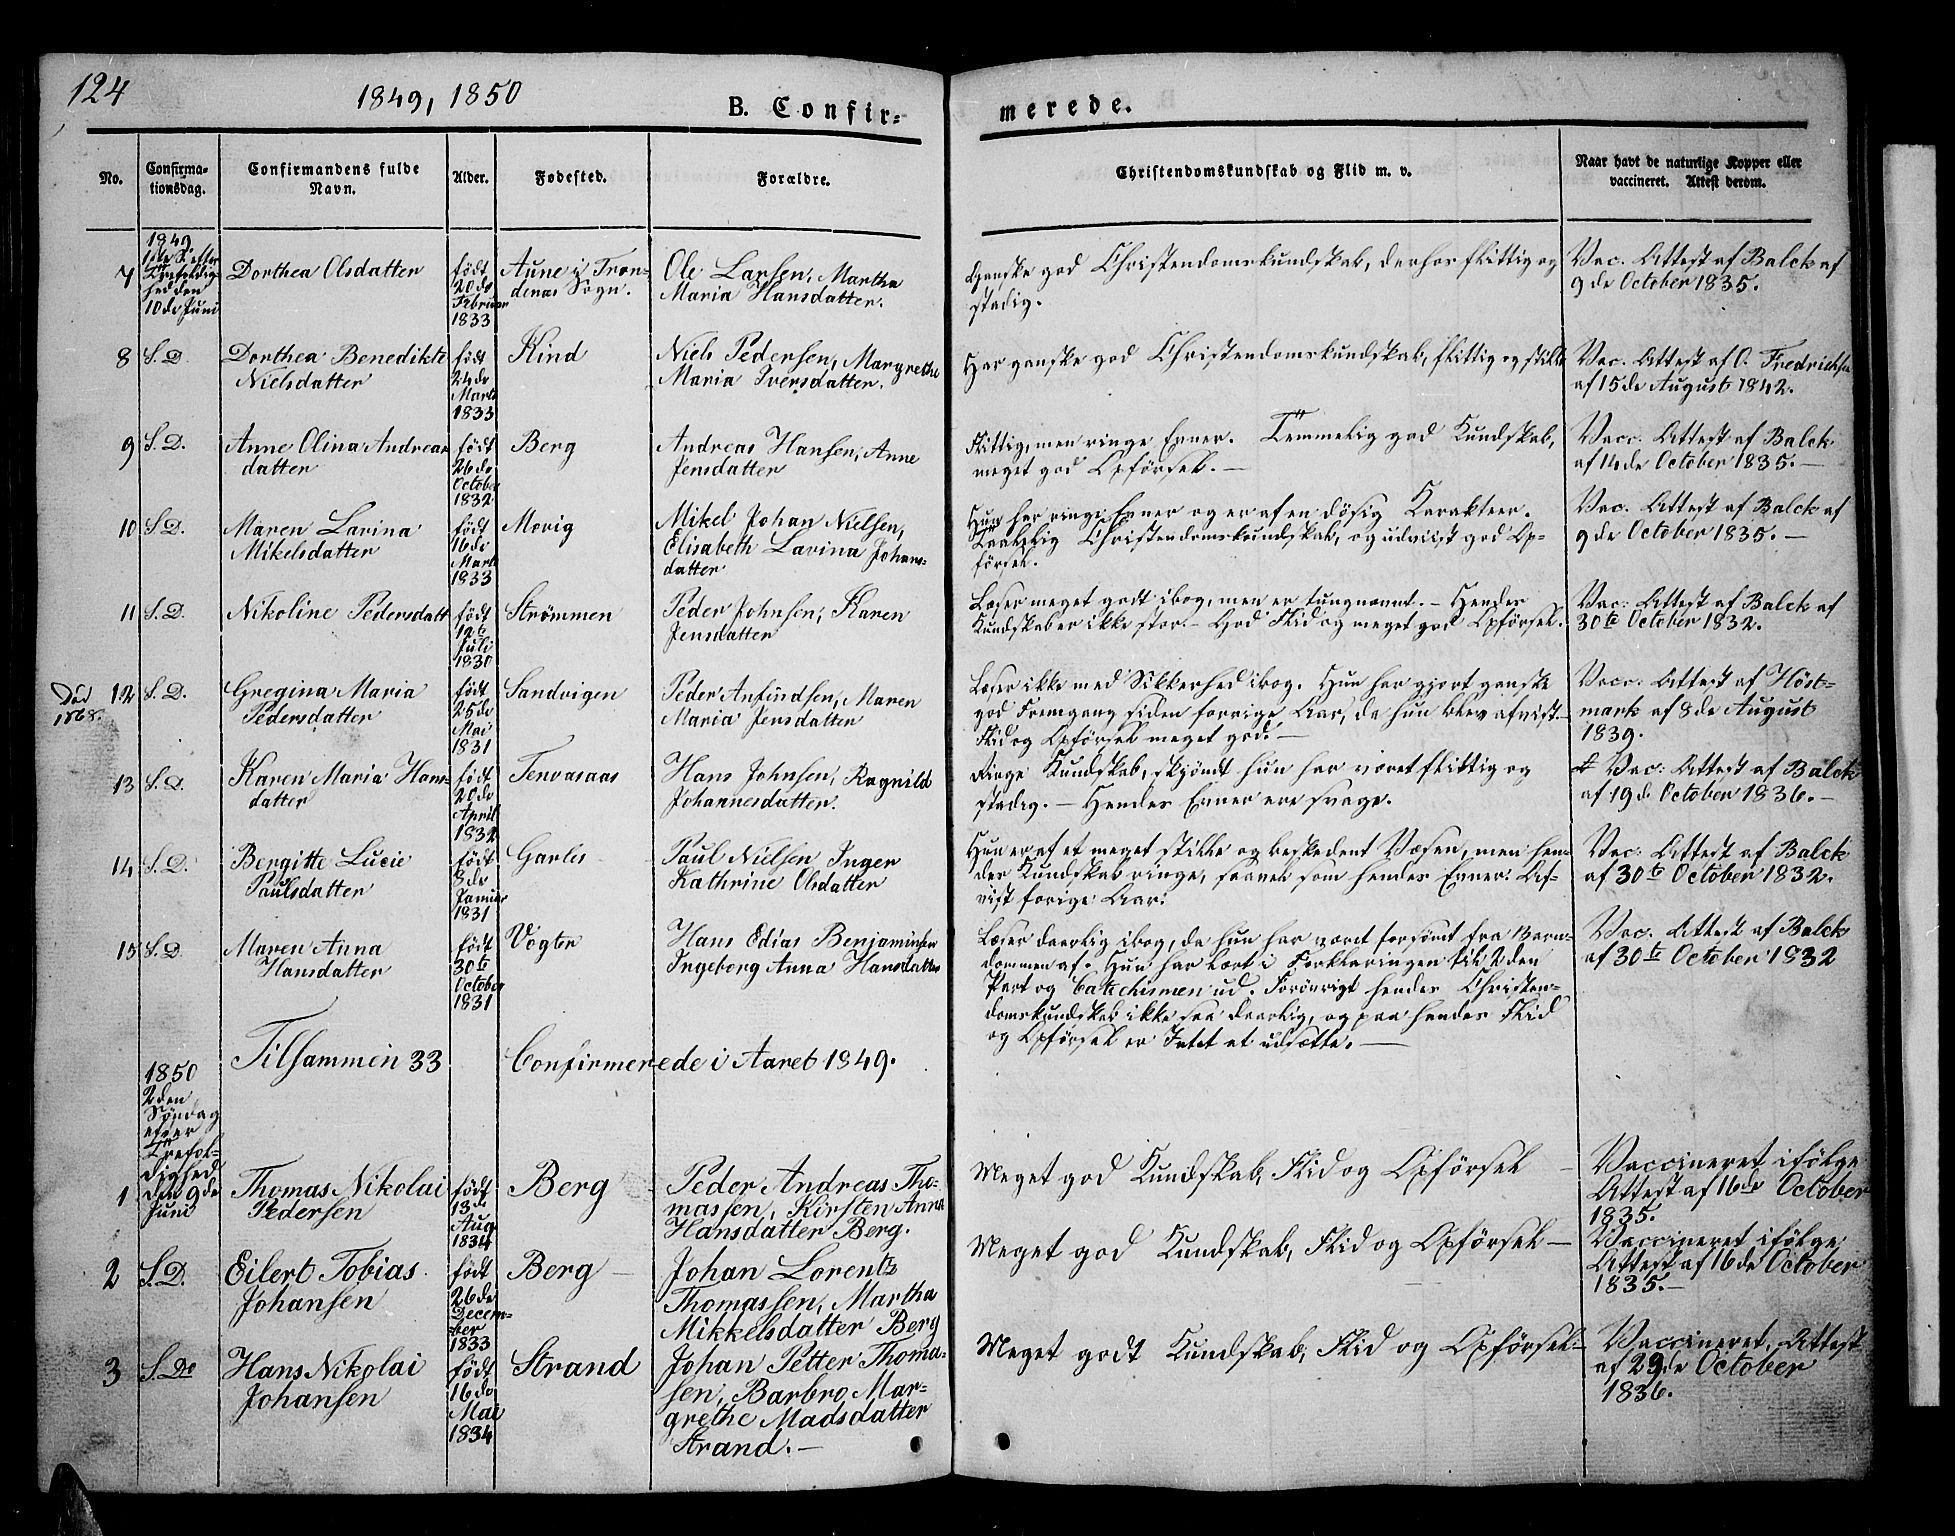 124
1849, 1850
B. Confir=
merede.
No.
Confirma-
tionsdag.
Confirmandens fulde
Navn.
Alder.
Fødested.
Forældre.
Christendomskundskab og Flid m. v.
Naar havt de naturlige Kopper eller
vaccineret. Attest derom.
7
1849
1ste S. efter
Trefoldig-
hed den
10de Juni
Dorthea Olsdatter
født
20de
Februar
1833
Aune i Tron-
denæs Sogn.
Ole Larsen, Martha
Maria Hansdatter.
Ganske god Christendomskundskab, derhos flittig og
stadig.
Vac. Attest af Balck af
9de October 1835.
8
S. D.
Dorthea Benedikte
Nielsdatter
født
24de
Marts
1833
Kind
Niels Pedersen, Margrethe
Maria Iversdatter.
Har ganske god Christendomskundskab, flittig og stille
Vac. Attest af O. Fredrichsen
af 15de August 1842.
9
S. D.
Anne Olina Andreas
datter
født
26de
October
1832
Berg
Andreas Hansen, Anne
Jensdatter
Flittig, men ringe Evner. Temmelig god Kundskab,
meget god Opførsel. —
Vacc. Attest af Balck
af 14de October 1835. —
10
S. D.
Maren Lavina
Mikelsdatter
født
16de
Marts
1833
Movig
Mikel Johan Nielsen,
Elisabeth Lavina Johans-
datter
Hun har ringe Evner og er af en døsig Karakteer.
Christendomskundskab, og udviist god Op-
førsel.
Vac. Attest af Balck af
9de October 1835. —
11
S. D.
Nikoline Pedersdatt
født
12te
Juli
1830
Strømmen
Peder Johnsen, Karen
Jensdatter
Læser meget godt i bog, men er tungnemt. — Hendes
Kundskab er ikke stor. — God Flid og meget god Opførsel.
Vac: Attest af Balck af
30te October 1832.
Død
1868.
12
S. D.
Gregina Maria
Pedersdatter
født
25de
Mai
1831
Sandvigen
Peder Anfindsen, Maren
Maria Jensdatter
Læser ikke med Sikkerhed i bog. Hun har gjort ganske
god Fremgang siden forrige Aar, da hun blev afvist. —
Flid og Opførsel meget god. —
Vacc. Attest af Høst=
mark af 8de August
1839.
13
S. D.
Karen Maria Hans-
datter
født
20de
April
1832
Tenvasaas
Hans Johnsen, Ragnild
Johannesdatter.
Ringe Kundskab, skjøndt hun har været flittig og
stadig. — Hendes Evner ere svage.
Vac: Attest af Balck
af 19de October 1836. —
14
S. D.
Bergitte Lucie
Paulsdatter
født
8de
Januar
1831
Garles
Paul Nielsen, Inger
Kathrine Olsdatter
Hun er af et meget stille og beskedent Væsen, men hen-
des Kundskab ringe, saavel som hendes Evner. Af-
vist forige Aar.
Vac: Attest af Balck
af 30te October 1832.
15
S. D.
Maren Anna
Hansdatter
født
30te
October
1831
Vogter
Hans Edias Benjaminsen
Ingeborg Anna Hansdatter
Læser daarlig i bog, da hun har været forsømt fra Barn-
dommen af. Hun har lært i Forklaringen til 2den
Part og Catechismen ud. Forøvrigt hendes Christen-
domskundskab ikke saa daarlig, og paa hendes Flid
og Opførsel er Intet at udsætte. —
Vac. Attest af Balck
af 30te October 1832
Tilsammen 33 Confirmerede i Aaret 1849.
1
1850
2den
Søndag
efter
Trefol-
dighed
den 9de
Juni
Thomas Nikolai
Pedersen
født
13de
Aug
1834
Berg
Peder Andreas Tho-
massen, Kirsten Anna
Hansdatter Berg.
Meget god Kundskab, Flid og Opførsel —
Vaccineret ifølge
Attest af 16de October
1835.
2
S. D.
Eilert Tobias
Johansen
født
26de
Decem-
ber
1833
Berg —
Johan Lorentz
Thomassen, Martha
Mikkelsdatter Berg
Meget god Kundskab, Flid og Opførsel —
Vaccineret ifølge
Attest af 16de October
1835. —
3
S. Do
Hans Nikolai
Johansen
født
16de
Mai
1834
Strand
Johan Petter Thoma-
sen, Barbro Mar-
grethe Madsdatter
Strand. —
Meget godt Kundskab, Flid og Opførsel —
Vaccineret, Attest
af 29de October
1836.